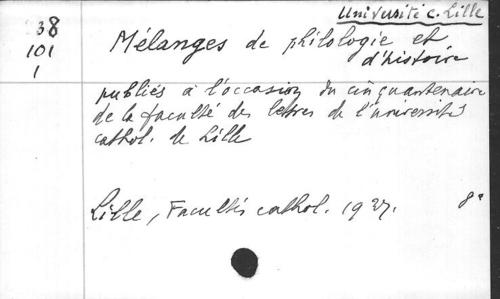 Université C. Lille
38
101
1
Mélanges de philologie et
d'histoire
publiés à l'occasion du cinquantenaire
de la faculté des lettres de l'université
cathol. de Lille
Lille, Facultés cathol. 1927. 8°